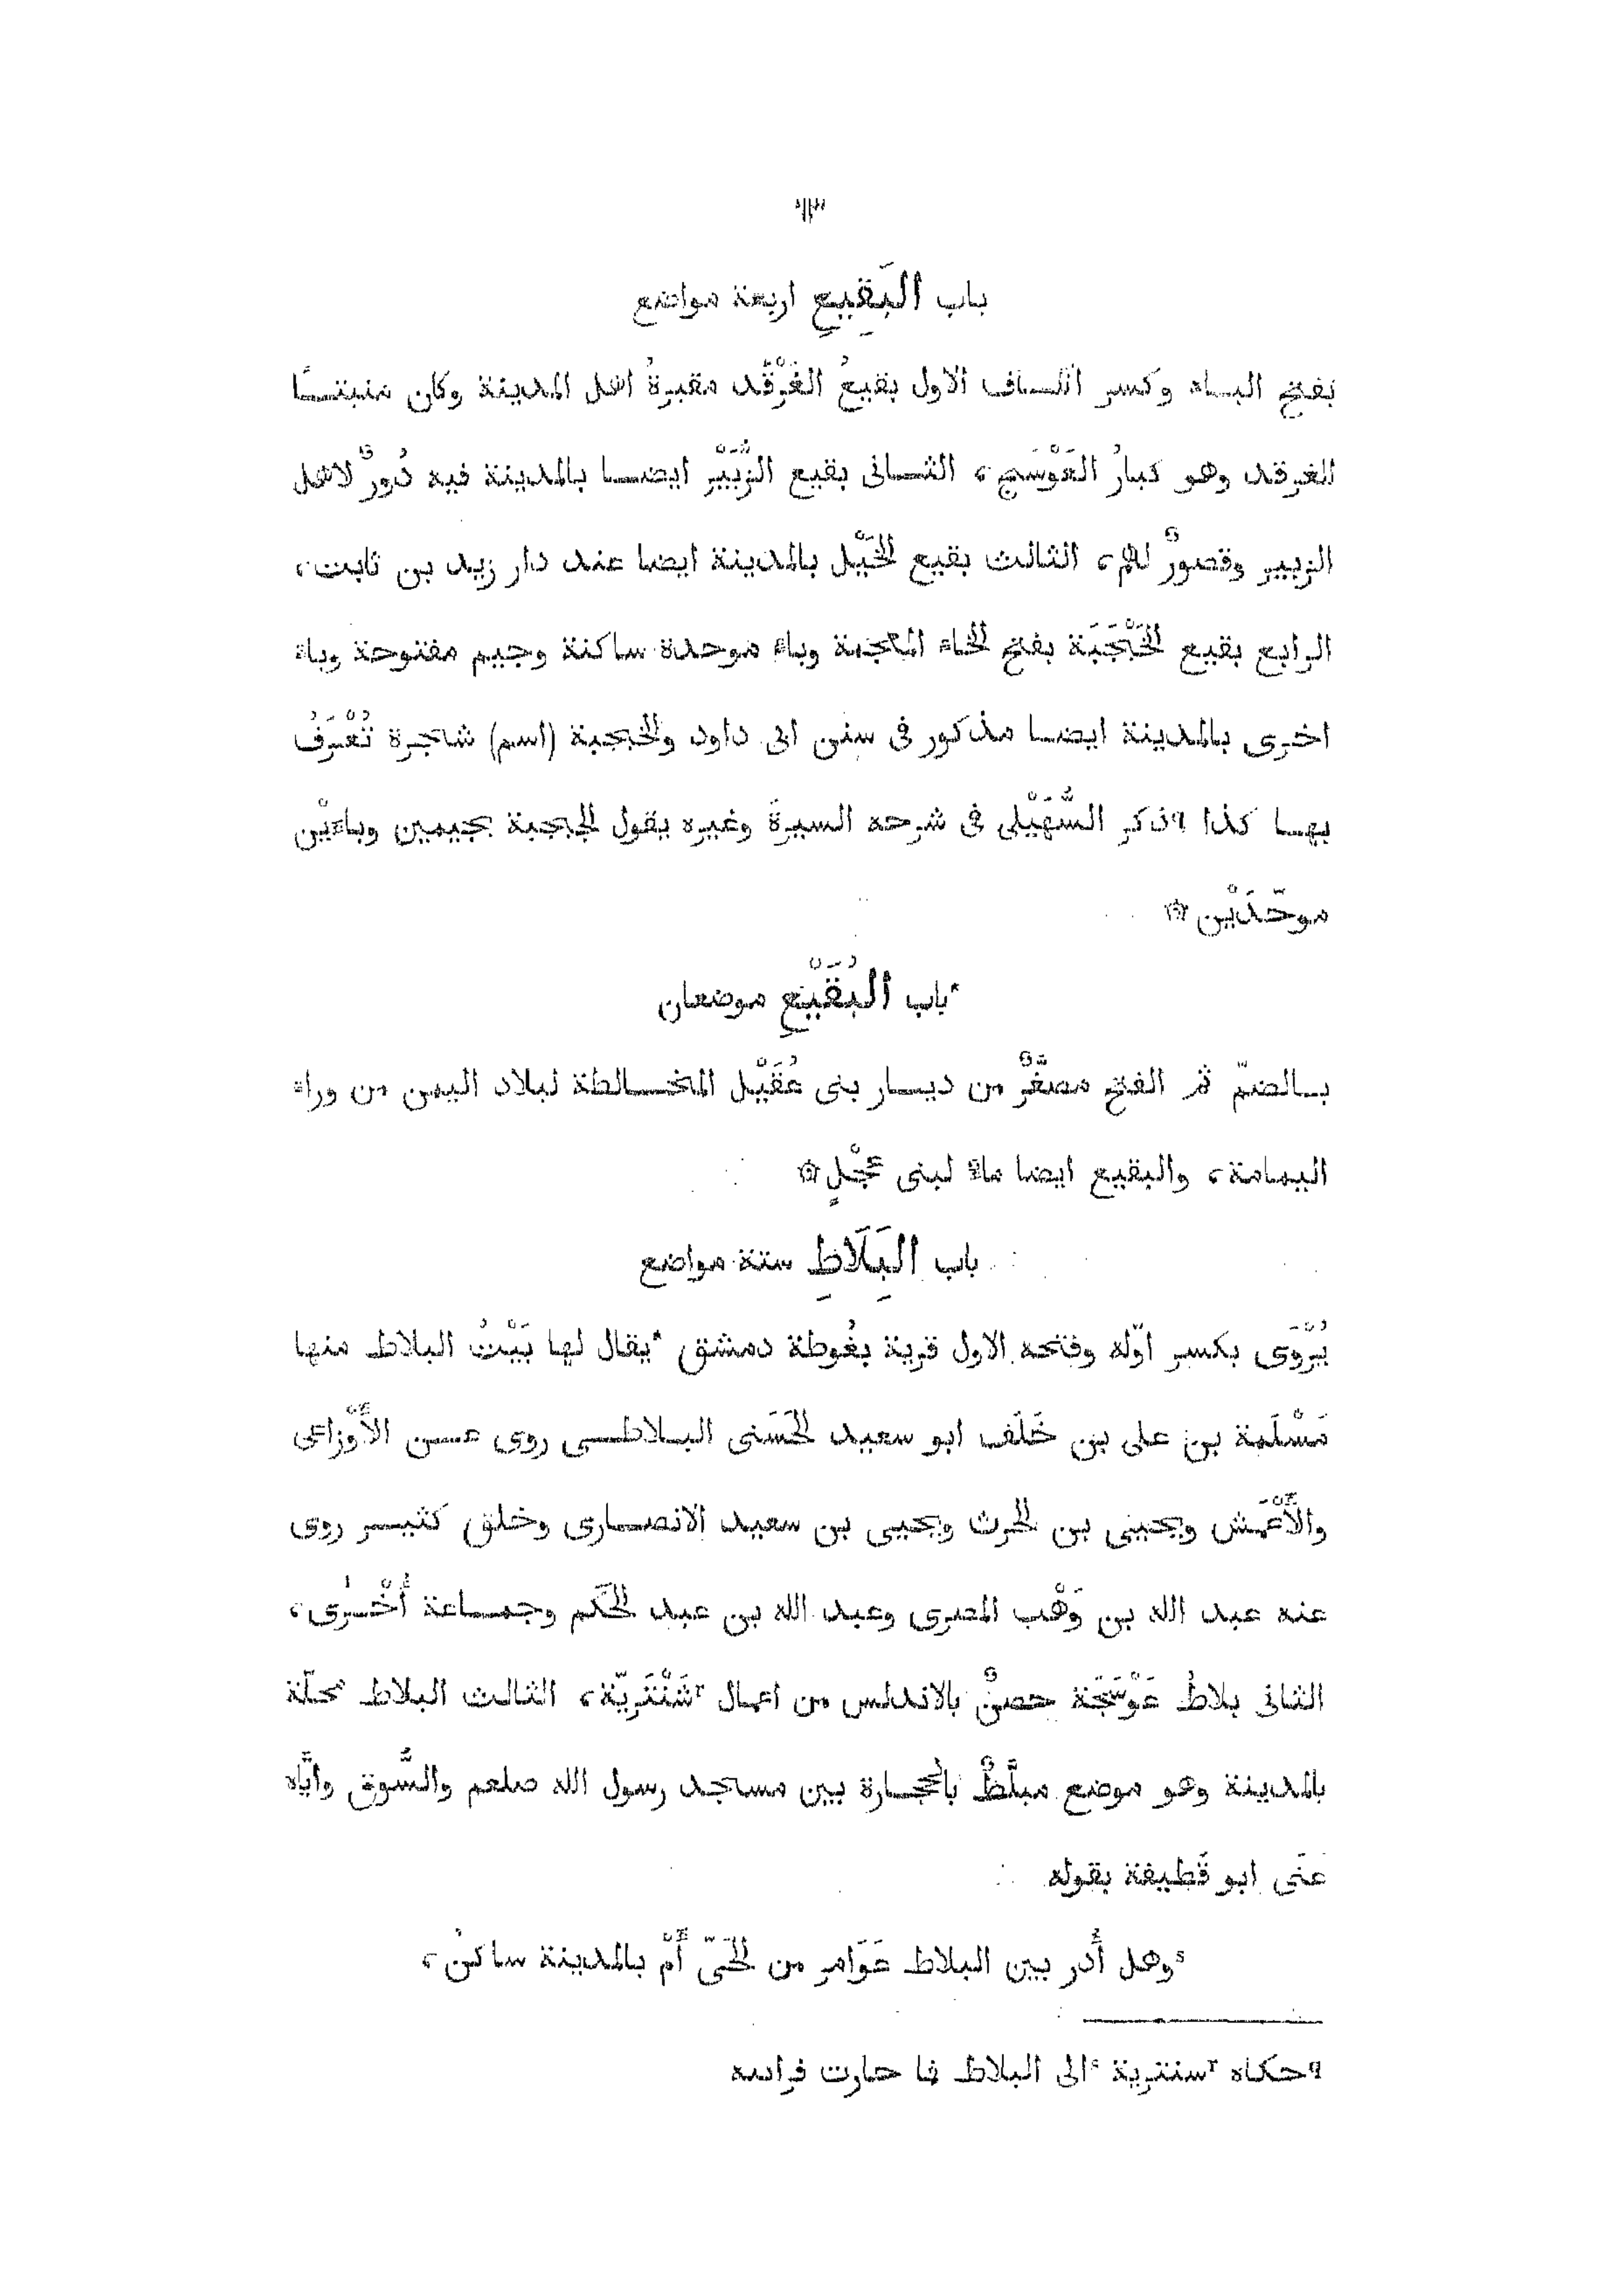 باب البَقِيعِ اربعة مواضع
بفتح البـاء وكسر القـاف الاول بقيعُ الغَرْقَد مقبرةُ اهل المدينة وكان منبتـًا
للغرقد وهو كبارُ العَوْسَج، الثـانى بقيع الزُّبَيْر ايضـا بالمدينة فيه دُورٌ لاهل
الزبير وقصورٌ لهم، الثالث بقيع الخَيْل بالمدينة ايضا عند دار زيد بن ثابت،
الرابع بقيع الخَبْجَبَة بفتح الخاء المعجمة وباء موحدة ساكنة وجيم مفتوحة وباء
اخرى بالمدينة ايضـا مذكور فى سنن ابى داود والخبجبة (اسم) شجرة تُعْرَفُ
بهـا كذا ٩ذكر السُّهَيْلى فى شرحه السيرة وغيره يقول الجبجبة بجيمين وباءَيْن
موحّدَيْن ۞
*باب البُقَيْعِ موضعان
بـالضمّ ثم الفتح مصغَّرٌ من ديـار بنى عُقَيْل المخـالطة لبلاد اليمن من وراء
اليمامة، والبقيع ايضا ماء لبنى عِجْلٍ ۞
باب البَِلَاطِ ستة مواضع
يُرْوَى بكسر اوّله وفتحه الاول قرية بغُوطة دمشق *يقال لها بَيْتُ البلاط منها
مَسْلَمة بن على بن خَلَف ابو سعيد الحَسَنى البـلاطـى روى عـن الأَوْزاعى
والأَعْمَش ويحيى بن الحرث ويحيى بن سعيد الانصـارى وخلق كثيـر روى
عنه عبد الله بن وَهْب المصرى وعبد الله بن عبد الحَكَم وجمـاعة أُخْرى،
الثانى بلاطُ عَوْسَجَة حصنٌ بالاندلس من اعمال ٢شَنْتَرِيّة، الثالث البلاط محلّة
بالمدينة وهو موضع مبلَّطٌ بالحجـارة بين مسجد رسول الله صلعم والسُّوق وايّاه
عنَى ابو قَطيفة بقوله
sوهل أَدر بين البلاط عَوَامر من الحَىّ أَمْ بالمدينة ساكنُ،
٩حكاه ٢سنترية sالى البلاط فما حارت